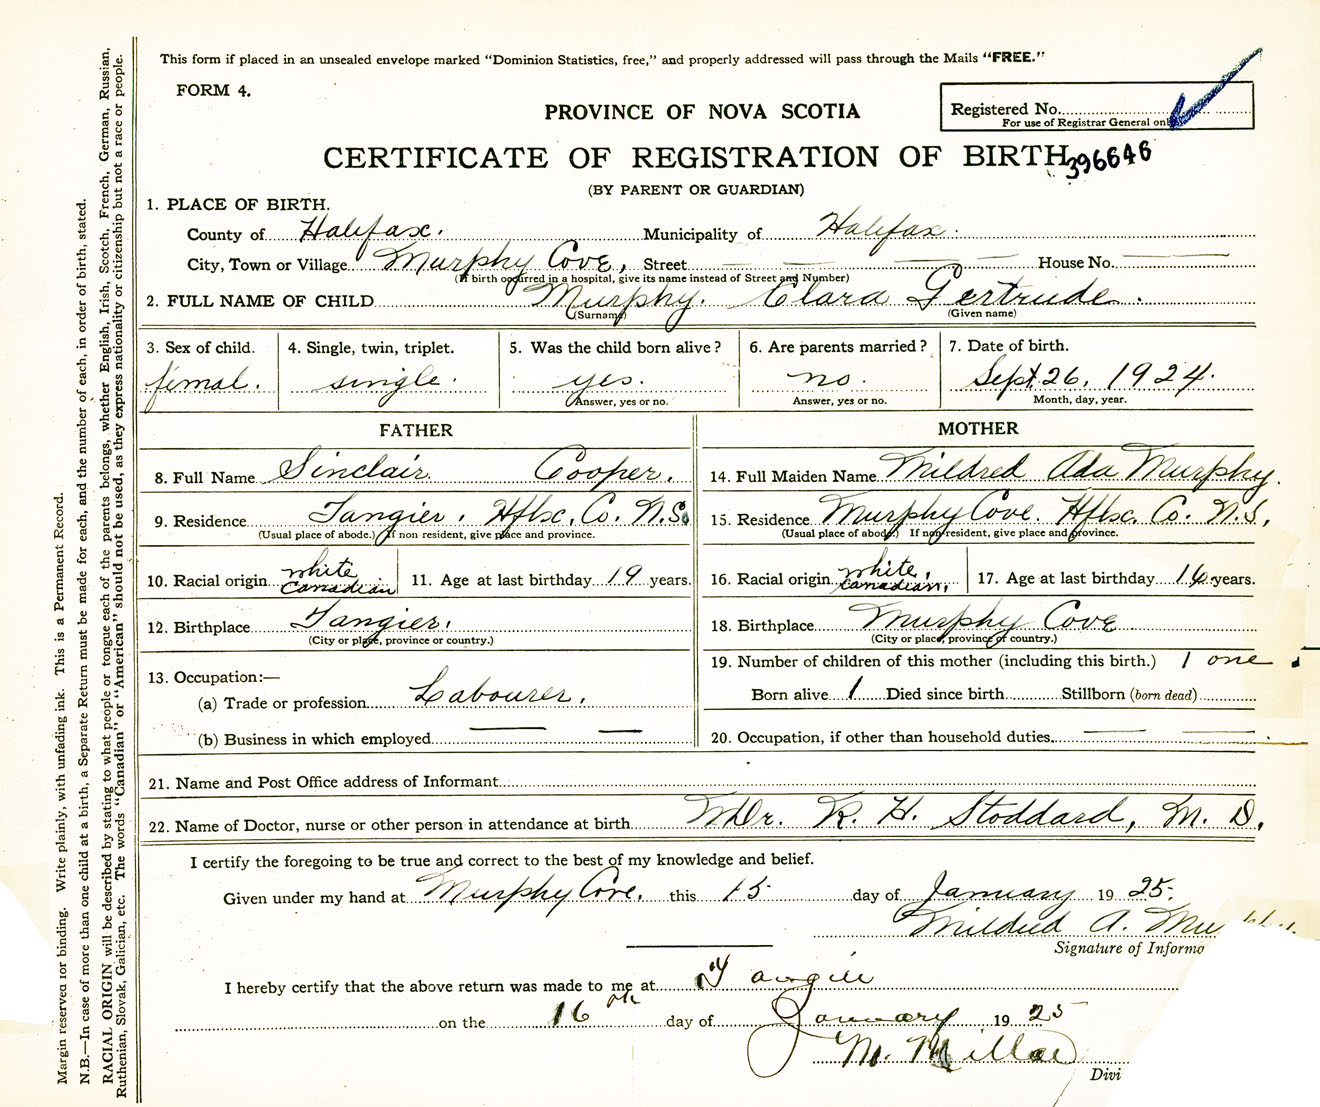 This form if placed in an unsealed envelope marked "Dominion Statistics, free," and properly addressed will pass through the Mails "FREE."
FORM 4.
PROVINCE OF NOVA SCOTIA
Registered No.
For use of Registrar General only
CERTIFICATE OF REGISTRATION OF BIRTH
396646
(BY PARENT OR GUARDIAN)
1. PLACE OF BIRTH.
County of Halifax. Municipality of Halifax.
City, Town or Village Murphy Cove, Street House No.
(If birth occurred in a hospital, give its name instead of Street and Number)
2. FULL NAME OF CHILD Murphy. Clara Gertrude.
(Surname) (Given name)
3. Sex of child. 4. Single, twin, triplet. 5. Was the child born alive? 6. Are parents married? 7. Date of birth.
femal. single. yes. no. Sept. 26, 1924.
Answer, yes or no. Answer, yes or no. Month, day, year.
FATHER
8. Full Name Sinclair Cooper.
9. Residence Tangier. Hfbx. Co. N.S.
(Usual place of abode.) If non resident, give place and province.
10. Racial origin white Canadian 11. Age at last birthday 19 years.
12. Birthplace Tangier.
(City or place, province or country.)
13. Occupation:—
(a) Trade or profession Labourer.
(b) Business in which employed
MOTHER
14. Full Maiden Name Mildred Ada Murphy.
15. Residence Murphy Cove. Hfbx. Co. N.S.
(Usual place of abode.) If non-resident, give place and province.
16. Racial origin white, Canadian. 17. Age at last birthday 16 years.
18. Birthplace Murphy Cove
(City or place, province or country.)
19. Number of children of this mother (including this birth.) 1 one
Born alive 1 Died since birth Stillborn (born dead)
20. Occupation, if other than household duties.
21. Name and Post Office address of Informant
22. Name of Doctor, nurse or other person in attendance at birth Dr. R. H. Stoddard, M. D.
I certify the foregoing to be true and correct to the best of my knowledge and belief.
Given under my hand at Murphy Cove. this 15 day of January 1925.
Mildred A. Murphy
Signature of Informa
I hereby certify that the above return was made to me at Tangier
on the 16th day of January 1925
M. Millar
Divi
Margin reserved for binding. Write plainly, with unfading ink. This is a Permanent Record.
N.B.—In case of more than one child at a birth, a Separate Return must be made for each, and the number of each, in order of birth, stated.
RACIAL ORIGIN will be described by stating to what people or tongue each of the parents belongs, whether English, Irish, Scotch, French, German, Russian,
Ruthenian, Slovak, Galician, etc. The words "Canadian" or "American" should not be used, as they express nationality or citizenship but not a race or people.